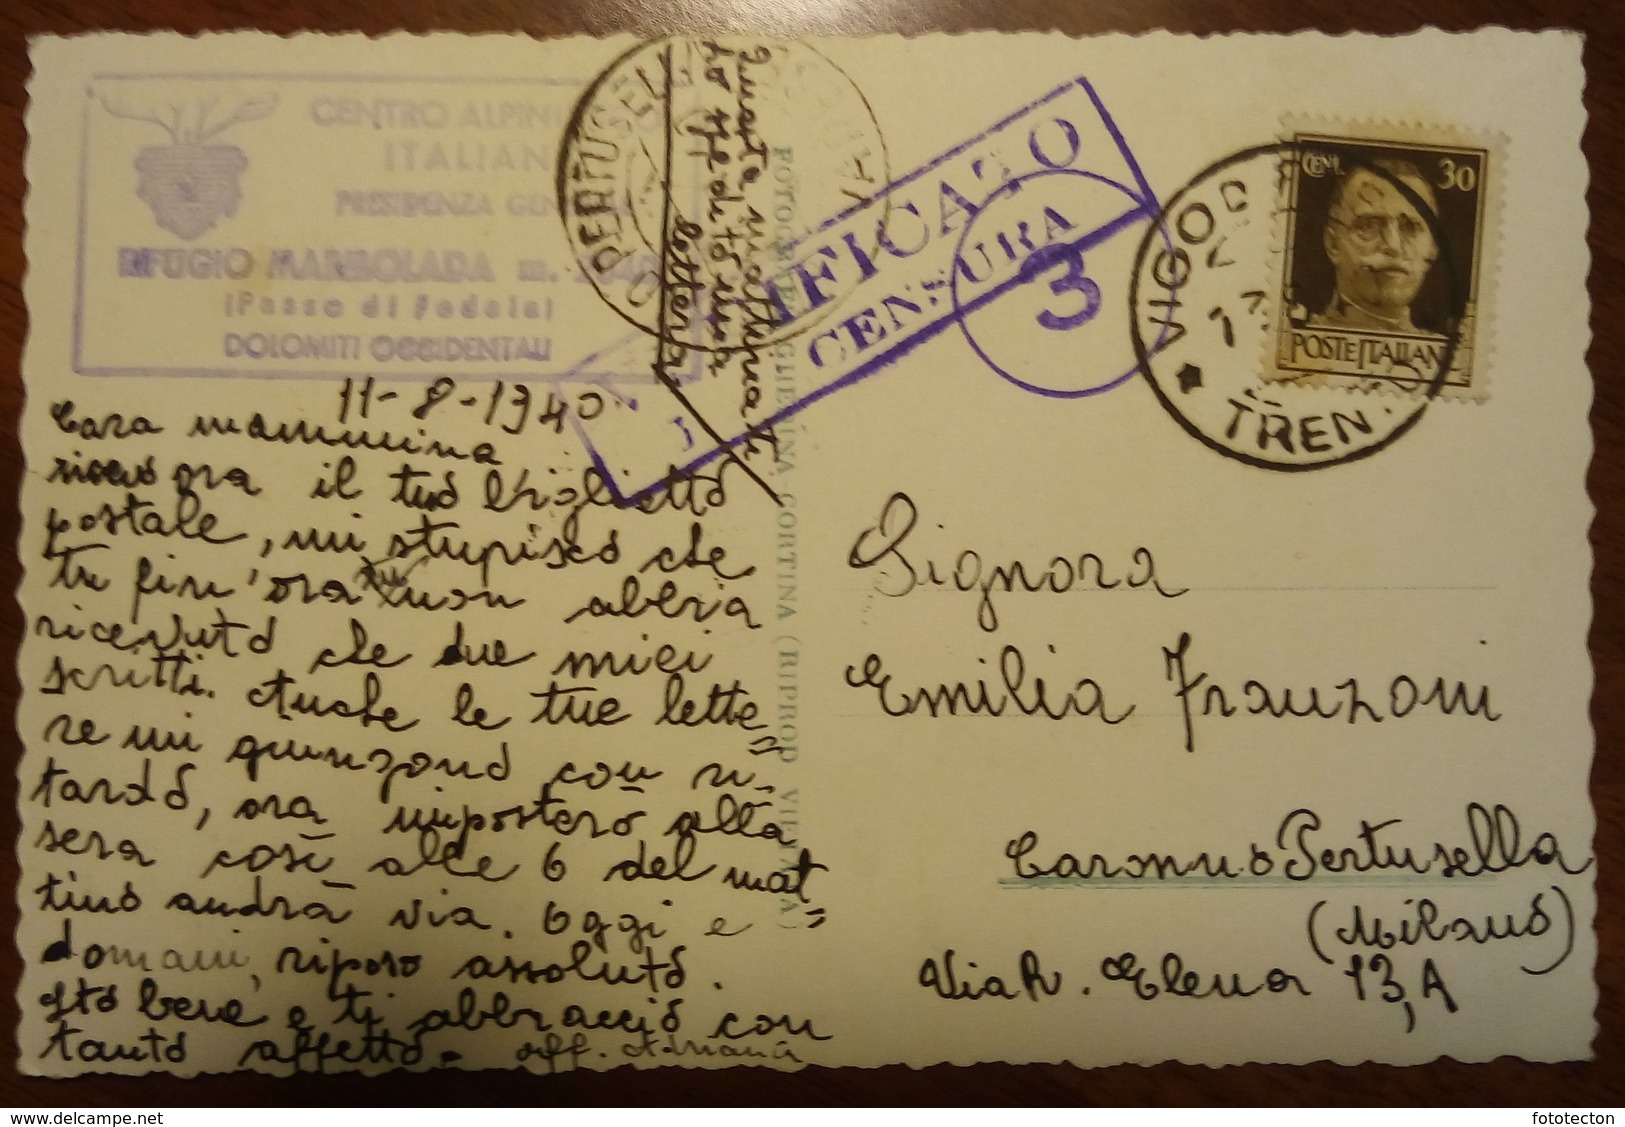 CENTRO ALPINO
ITALIANO
PRESIDENZA GEN
RIFUGIO MARMOLADA m.
(Passo di Fedaia)
DOLOMITI OCCIDENTALI
11-8-1940
Cara mammina
ricevo ora il tuo biglietto
postale, mi stupisco che
tu fin'ora non abbia
ricevuto che due miei
scritti. Anche le tue lette=
re mi giungono con ri-
tardo, ora imposterò alla
sera così alle 6 del mat=
tino andrà via. Oggi e
domani, riposo assoluto.
Sto bene e ti abbraccio con
tanto affetto - aff. Adriana
Questa mattina te
ho spedito una
lettera
O PERTUSELL
VA
IFICATO
CENSURA
3
FOTOGR. GHEDINA-CORTINA (RIPROD. VIETATA)
VIGO DI F
TREN
CENT. 30
POSTE ITALIAN
Signora
Emilia Franzoni
Caronno Pertusella
(Milano)
Via R. Elena 13, A
fototecton